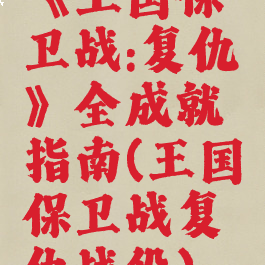 《王国保
卫战:复仇
》全成就
指南(王国
保卫战复
仇战役)